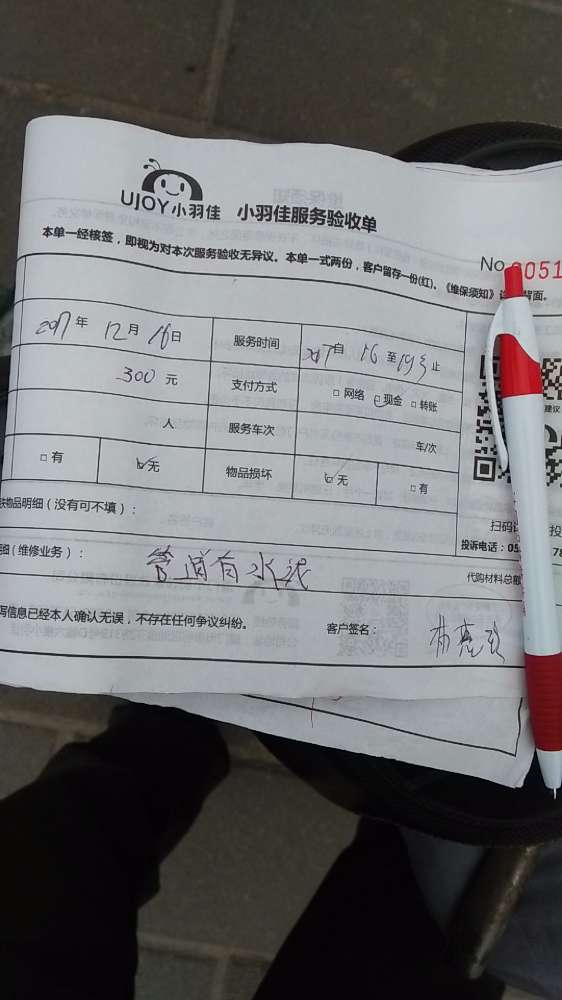 UJOY小羽佳 小羽佳服务验收单
本单一经核签，即视为对本次服务验收无异议。本单一式两份，客户留存一份(红)，《维保须知》 背面。
No 0051
2017年 12月 16日 服务时间 自 16 至 19 止
300 元 支付方式 □网络 □现金 □转账
人 服务车次 车/次
建议
□有 □无 物品损坏 □无 □有
物品明细（没有可不填）：
扫码
投诉电话：05 78
（维修业务）： 管道有水
代购材料总额
写信息已经本人确认无误，不存在任何争议纠纷。 客户签名：